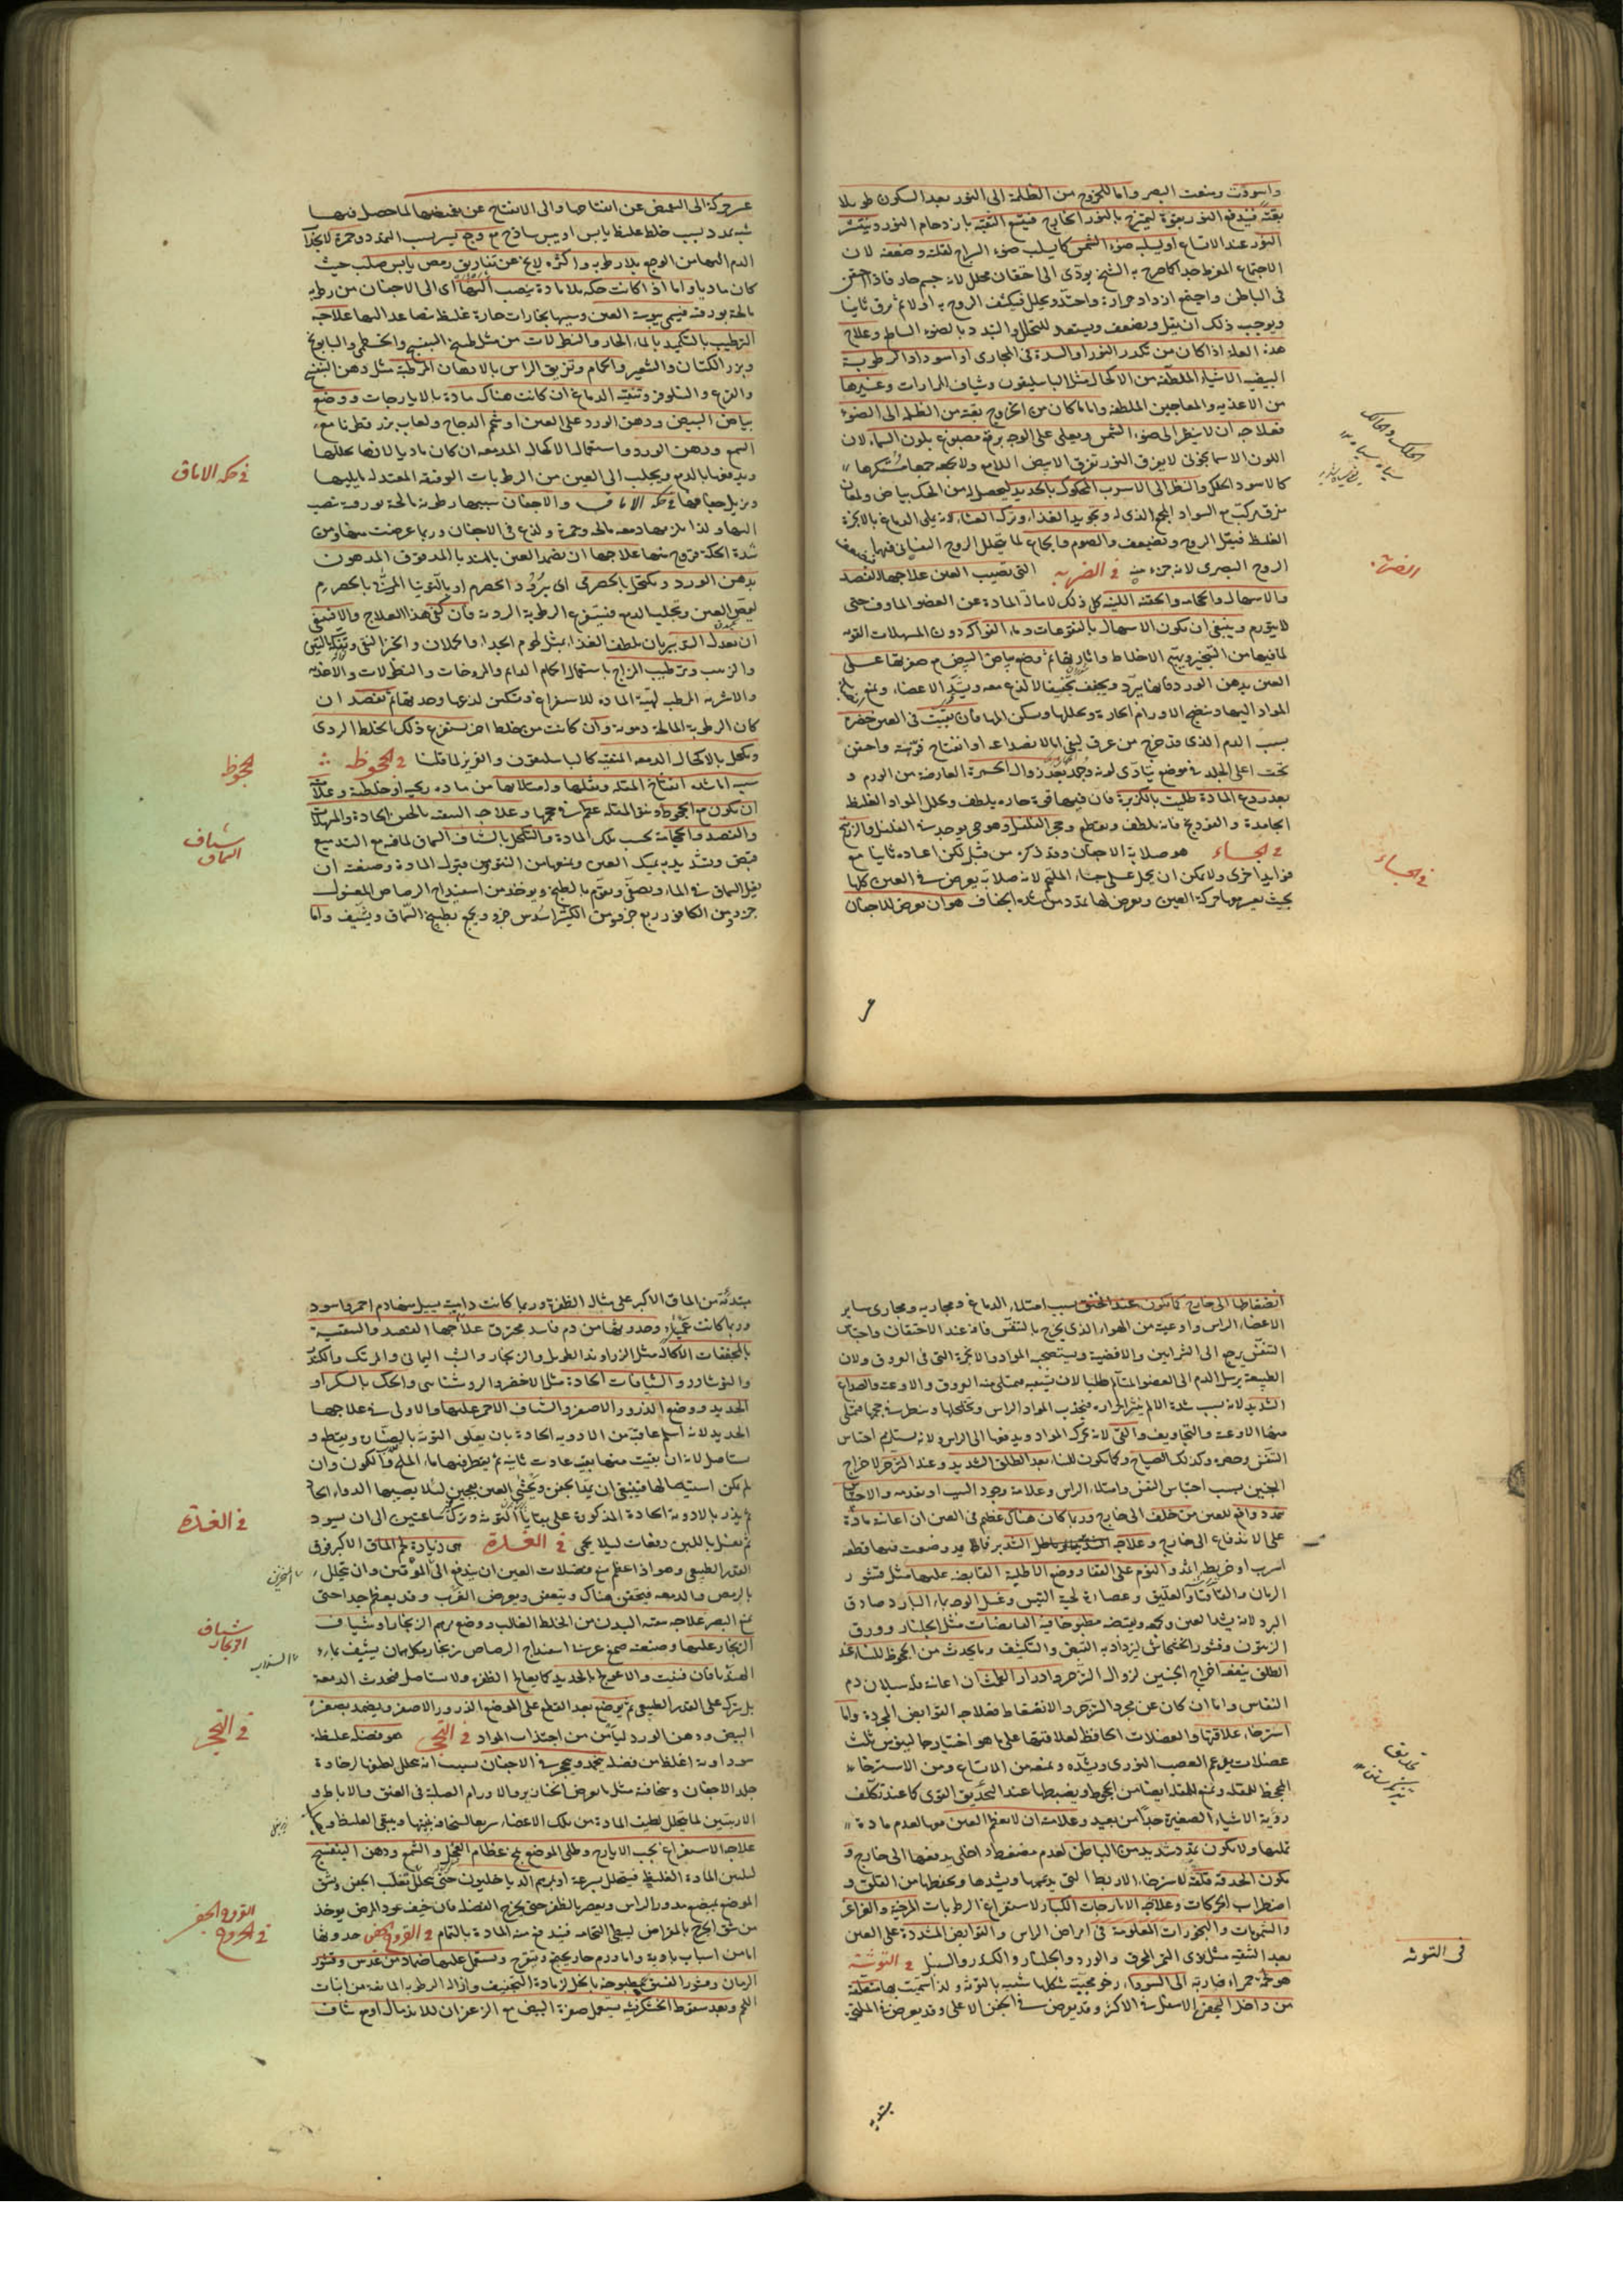 واسودت وضعت البصر واما للخروج من الظلمة الى النور بعد السكون طويلا
بغتة فيدفع النور بقوة ليمتزج بالنور الخارج فيتسع الثقبة بازدحام النور وينتشر
النور عند الاتساع او لسلبه ضوء الشمس كما يسلب ضوء السراج لقلته وضعفه لان
الاجتماع المفرط جدا كما صرح به الشيخ يودى الى احتقان محلل لانه جسم حار فاذا احتقن
فى الباطن واجتمع ازداد حرارة واحتد وتحلل فيكثف الروح به اولا ثم يرق ثانيا
ويوجب ذلك ان يقل ويضعف ويستعد للتحلل والتبدد بالضوء الساطع وعلاج
هذه العلة اذا كان من تكدر النور او السدة فى المجارى او اسوداد الرطوبة
البيضية الاشياء الملطفة من الاكحال مثل الباسليقون وشياف المرارات وغيرها
من الاغذية والمعاجين الملطفة واما ما كان من الخروج بغتة من الظلمة الى الضوء
فعلاجه ان لا ينظر الى ضوء الشمس ويعلى على الوجه برقع مصبوغ بلون السماء لان
اللون الاسمانجونى لا يفرق النور تفرق الابيض اللامع ولا يجمعه جمعا مستكرها
كالاسود الحالك والنظر الى الاسرب المحكوك بالحديد ليحصل له من الحك بياض ولمعان
مفرق مركب مع السواد المجمع الذى له وتجويد الغذاء وترك العشاء لانه يملى الدماغ بالابخرة
الغليظة فيثقل الروح وتضعف والصوم والجماع لما يتحلل الروح النفسانى فيهما
الروح البصرى لانه جزء منه فى الضربة التى تصيب العين علاجها الفصد
والاسهال والحجامة والحقنة اللينة كل ذلك لامالة المادة عن العضو الماوف حتى
لا يتورم وينبغى ان يكون الاسهال بالنقوعات وماء الفواكه دون المسهلات القوية
لما فيها من التسخين وتهييج الاخلاط واثارتها ثم وضع بياض البيض مع صفرتها على
العين بدهن الورد فانها يبرد ويجفف تجفيفا لا لذع معه ويشد الاعضاء ويمنع
المواد اليها وينضج الاورام الحارة ويحللها ويسكن المها فان بقيت فى العين خضرة
بسبب الدم الذى قد خرج من عرق ليفى اما لانصداعه او انفتاح فوهته واحتقن
تحت اعلى الجلد فى موضع يتادى لونه وجمد بعد زوال الحمرة العارضة من الورم و
بعد ردع المادة طليت بالكزبرة فان فيها قوة حارة يلطف وتحلل المواد الغليظة
الجامدة و الفودنج فانه يلطف ويقطع وحجر الفلفل وهو حجر يوجد فى الفلفل والزرنيخ
فى الجساء هو صلابة الاجفان وقد ذكره من قبل لكن اعاده ثانيا مع
فوايد اخرى ولا يمكن ان يحمل على جساء الملتحم لانه صلابة يعرض فى العين كلها
بحيث يعسر بها حركة العين ويعرض لها تمدد من شدة الجفاف هو ان يعرض للاجفان
الحلك والحالك
سياه
الضربة
فى الجساء
عسر حركة الى التغميض عن انفتاحها والى الانفتاح عن تغميضها لما حصل فيها
شبه تمدد بسبب خلط غليظ يابس او يبس ساذج مع وجع يسير بسبب التمدد وحمرة لانجذاب
الدم اليها من الوجع بلا رطوبة واكثره لا يخ عن تفاريق رمص يابس صلب حيث
كان ماديا واما اذا كانت حكة بلا مادة ينصب اليها اى الى الاجفان من رطوبة
مالحة بورقية فيسمى يبوسة العين وسببها بخارات حارة غليظة متصاعدة اليها علاجه
الترطيب بالتكميد بالماء الحار والنطولات من مثل طبيخ البنفسج والخطمى والبابونج
وبزر الكتان والشعير والحمام وتغريق الراس بالادهان المرطبة مثل دهن البنفسج
والقرع والنيلوفر وتنقية الدماغ ان كانت هناك مادة بالايارجات ووضع
بياض البيض ودهن الورد على العين او شحم الدجاج ولعاب بزر قطونا مع
الشمع ودهن الورد واستعمال الاكحال المدمعة ان كان ماديا لانها تحللها
ويدفعها بالدمع ويجلب الى العين من الرطوبات الرقيقة المعتدلة ما يلينها
ويزيل جفافها فى حكة الاماق والاجفان سببها رطوبة مالحة بورقية تنصب
اليها ولذا يلزمها دمعة مالحة وحمرة ولذع فى الاجفان وربما عرضت منها ومن
شدة الحكة قروح منها علاجها ان يضمد العين بالهندبا المدقوق المدهون
بدهن الورد ويكتحل بالحصرمى اى برود الحصرم او بالتوتيا المرباة بالحصرم
ليقبض العين وتجلب الدمع فيستفرغ الرطوبة الردية فان كفى هذا العلاج والا فينبغى
ان يعدل التدبير بان يلطف الغذاء بمثل لحوم الجداء والحملان والخبز النقى والتين
والزبيب وترطيب المزاج باستعمال الحمام الدائم والمروخات والنطولات والاغذية
والاشربة المرطبة لتهية المادة للاستفراغ وتسكين لذعها وحدتها ثم تفصد ان
كان الرطوبة المالحة دموية وان كانت من خلط اخر يستفرغ ذلك الخلط الردى
ويكحل بالاكحال المدمعة المنقية كالباسليقون والعزيزى لما قلنا فى الجحوظ
سببه اما شدة انتفاخ المقلة وثقلها وامتلائها من مادة ريحية او خلطية وعلامته
ان يكون مع الجحوظ ونتو المقلة عظم فى حجمها وعلاجه التنقية بالحقن الحادة والمسهلات
والفصد والحجامة بحسب تلك المادة والتكحل بالشياف السماقى لما فيه مع التدميع
قبض وتشديد يمسك العين ويمنعها من النتو من قبول المادة وصنعته ان
يغلى السماق فى الماء ويصفى ويقوم بالطبخ ويوخذ من اسفيداج الرصاص المغسول
جزء ومن الكافور ربع جزء ومن الكثيرا سدس جزء ويعجن بطبيخ السماق ويشيف واما
فى حكة الاماق
الجحوظ
شياف
السماق
انضغاطها الى خارج كما يكون عند الخنق بسبب امتلاء الدماغ ومجاريه ومجارى ساير
الاعضاء الراس واوعيته من الهواء الذى يخرج بالتنفس فانه عند الاختناق واحتباس
التنفس يرجع الى الشرايين والاقضية ويستصحب المواد والابخرة التى فى العروق ولان
الطبيعة يرسل الدم الى العضو المتألم طلبا لان تشبعه فيمتلى منه العروق والاوعية والصداع
الشديد لانه بسبب شدة الالم يثير الحرارة فيجذب المواد الراس ويخلخلها وينطل فى حجمها فيمتلى
منها الاوعية والتجاويف والقى لانه يحرك المواد ويدفعها الى الراس ولانه يستلزم احتباس
النفس وحصره وكذلك الصياح وكما يكون للنساء بعد الطلق الشديد وعند التزحر لاخراج
الجنين بسبب احتباس النفس وامتلاء الراس وعلامته وجود السبب او تقدمه والاحساس
بتمدد دافع للعين من خلف الى خارج وربما كان هناك عظم فى العين ان اعانته مادة
على الاندفاع الى خارج وعلاجه الشد بعد وضع قطعة
اسرب او خريطة الشد والنوم على القفا ووضع الاطلية القابضة عليها مثل قشور
الرمان والاقاقيا والعليق وعصارة لحية التيس وغسل الوجه بالماء البارد صادق
البرد لانه يشد العين ويجمعه ويقبضه مطبوخا فيه القابضات مثل الجلنار وورق
الزيتون وقشور الخشخاش ليزداد به القبض والتكثيف وما يحدث من الجحوظ للنساء عند
الطلق ينفعه اخراج الجنين لزوال التزحر وادرار الطمث ان اعانه قلة سيلان دم
النفاس واما ان كان عن مجرد التزحر والانضغاط فعلاجه القوابض المجردة واما
استرخاء علاقتها والعضلات الحافظة لعلاقتها على ما هو اختيار جالينوس ثلث
عضلات يدعم العصب النورى ويشده ويمنعه من الاتساع ومن الاسترخاء
المجحظ للمقلة ويمنع المقلة ايضا من الجحوظ ويضبطها عند التحديق القوى كما عند تكلف
رؤية الاشياء الصغيرة جدا من بعيد وعلامته ان لا يعظم العين معها لعدم مادة
تملئها ولا يكون تمدد شديد من الباطن لعدم مضغط داخلى يدفعها الى خارج و
يكون الحدقة قلقة لاسترخاء الاربطة التى يدعمها ويشدها ويحفظها من القلق و
اضطراب الحركات وعلاجه الايارجات الكبار لاستفراغ الرطوبات المرخية والغراغر
والشمومات والبخورات المعلومة فى امراض الراس والقوابض المشددة على العين
بعد التنقية مثل نوى التمر المحرق والورد والجلنار والكندر والسنبل فى التوثة
هو لحمة حمراء ضاربة الى السواد رخوة محببة شكلها شبيه بالتوثة ولذا سميت بها متعلقة
من داخل الجفن الاسفل فى الاكثر وقد يعرض فى الجفن الاعلى وقد يعرض فى الملتحم
تحديق
تيز نگريستن
فى التوثة
مبتدئة من الماق الاكبر على مثال الظفرة وربما كانت دامية يسيل منها دم احمر واسود
وربما كانت عمياء وحدوثها من دم فاسد محترق علاجها الفصد والتنقية
بالمجففات الاكالة مثل الزراوند الطويل والزنجار والشب اليمانى والمرتك والكندر
والنوشادر والشيافات الحادة مثل الاخضر والروشنايى والحك بالسكر او
الحديد ووضع الذرور الاصفر والشياف الاحمر عليها والاولى فى علاجها
الحديد لانه اسلم عاقبة من الادوية الحادة بان يعلق التوثة بالصنارة ويقطع و
يستاصل لانه ان بقيت منها بقية عادت ثانية ثم يقطر فيها ماء الملح والكمون وان
لم يكن استيصالها فينبغى ان يقلب الجفن ويحشى العين بعجين لئلا يصيبها الدواء الحاد
ثم يذر بالادوية الحادة المذكورة على بقايا التوثة ويترك ساعتين الى ان يسود
ثم يغسل باللبن دفعات ليلا يحمى فى الغدة هى زيادة لحم الماق الاكبر فوق
القدر الطبيعى وهو اذا عظم منع فضلات العين ان يندفع الى المؤقين وان يتحلل
بالرمص والدمعة فيحتقن هناك ويتعفن ويعرض الغرب وقد يعظم جدا حتى
يمنع البصر علاجه تنقية البدن من الخلط الغالب ووضع مرهم الزنجار او شياف
الزنجار عليها وصنعته صمغ عربى اسفيداج الرصاص زنجار بيشف بماء
الهندبا فان فنيت والا عولج بالحديد كما يعالج الظفرة ولا يستاصل فيحدث الدمعة
بل يترك على القدر الطبيعى ثم يوضع بعد القطع على الموضع الذرور الاصفر ويضمد بصفرة
البيض ودهن الورد ليامن من اجتذاب المواد فى التحجر هو فضلة غليظة
سوداوية اغلظ من فضلة يتجمد ويتحجر فى الاجفان بسبب انه يتحلل لطفها لرخاوة
جلد الاجفان وسخافته مثل ما يعرض الخنازير والاورام الصلبة فى العنق والاباط و
الاربتين لما يتحلل لطيف المادة من تلك الاعضاء سريعا لسخافة بنيتها ويبقى الغليظ
علاجه الاستفراغ بحب الايارج وطلى الموضع بمخ عظام العجل والشمع ودهن البنفسج
لتليين المادة الغليظة فيتحلل بسرعة او بمرهم الدياخيلون حتى يتحلل تقلب الجفن وشق
الموضع بمبضع مدور الراس ويعصر بالظفر حتى يخرج الفضلة فان خيف عود المرض يوخذ
من شق الجرح بالمقراض ليبطى التحامه فيندفع منه المادة بالتمام فى القروح الجفن حدوثها
اما من اسباب بادية واما ورم حار يجتمع ويتقرح ويستعمل عليها ضماد من عدس وقشور
الرمان وقشور الفستق مطبوخة بالخل لزيادة التجفيف وازالة الرطوبة المانعة من انبات
اللحم وبعد سقوط الخشكريشة يستعمل صفرة البيض مع الزعفران للاندمال او مع شياف
فى الغدة
شياف
الزنجار
فى التحجر
القروح الجفن